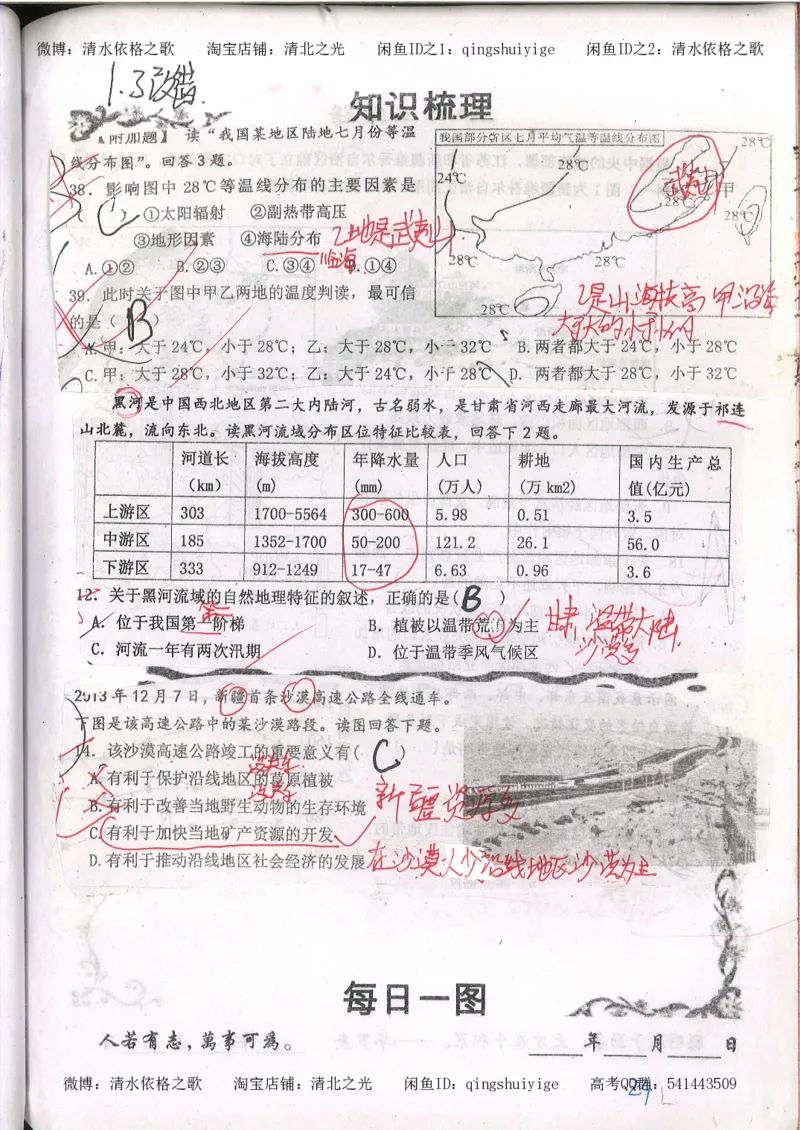 微博：清水依格之歌 淘宝店铺：清北之光 闲鱼ID之1：qingshuiyige 闲鱼ID之2：清水依格之歌
1.3改错
知识梳理
【附加题】 读“我国某地区陆地七月份等温
线分布图”。回答3题。
我国部分省区七月平均气温等温线分布图
28℃
28℃
24℃
武夷山
甲
28℃
28℃
28℃
28℃
28℃
38. 影响图中28℃等温线分布的主要因素是
（ C ） ①太阳辐射 ②副热带高压
③地形因素 ④海陆分布 乙地是武夷山
临海
A.①② B.②③ C.③④ D.①④
39. 此时关于图中甲乙两地的温度判读，最可信
的是（ B ）
乙是山 海拔高 甲沿海
大于大的 小于小的
A.甲：大于24℃，小于28℃；乙：大于28℃，小于32℃ B.两者都大于24℃，小于28℃
C.甲：大于28℃，小于32℃；乙：大于24℃，小于28℃ D. 两者都大于28℃，小于32℃
黑河是中国西北地区第二大内陆河，古名弱水，是甘肃省河西走廊最大河流，发源于祁连
山北麓，流向东北。读黑河流域分布区位特征比较表，回答下2题。
河道长 海拔高度 年降水量 人口 耕地 国内生产总
（km） （m） （mm） （万人） （万 km2） 值（亿元）
上游区 303 1700-5564 300-600 5.98 0.51 3.5
中游区 185 1352-1700 50-200 121.2 26.1 56.0
下游区 333 912-1249 17-47 6.63 0.96 3.6
12. 关于黑河流域的自然地理特征的叙述，正确的是（ B ）
第二
A. 位于我国第一阶梯 B. 植被以温带荒漠为主 甘肃 温带大陆
C. 河流一年有两次汛期 D. 位于温带季风气候区 沙漠多
2013年12月7日，新疆首条沙漠高速公路全线通车。
下图是该高速公路中的某沙漠路段。读图回答下题。
14. 该沙漠高速公路竣工的重要意义有（ C
没关系
A.有利于保护沿线地区的草原植被
没关系
B.有利于改善当地野生动物的生存环境 新疆资源多
C.有利于加快当地矿产资源的开发
D.有利于推动沿线地区社会经济的发展 在沙漠 人少 沿线地区沙漠为主
每日一图
人若有志，萬事可為。 年 月 日
微博：清水依格之歌 淘宝店铺：清北之光 闲鱼ID：qingshuiyige 高考QQ群：541443509